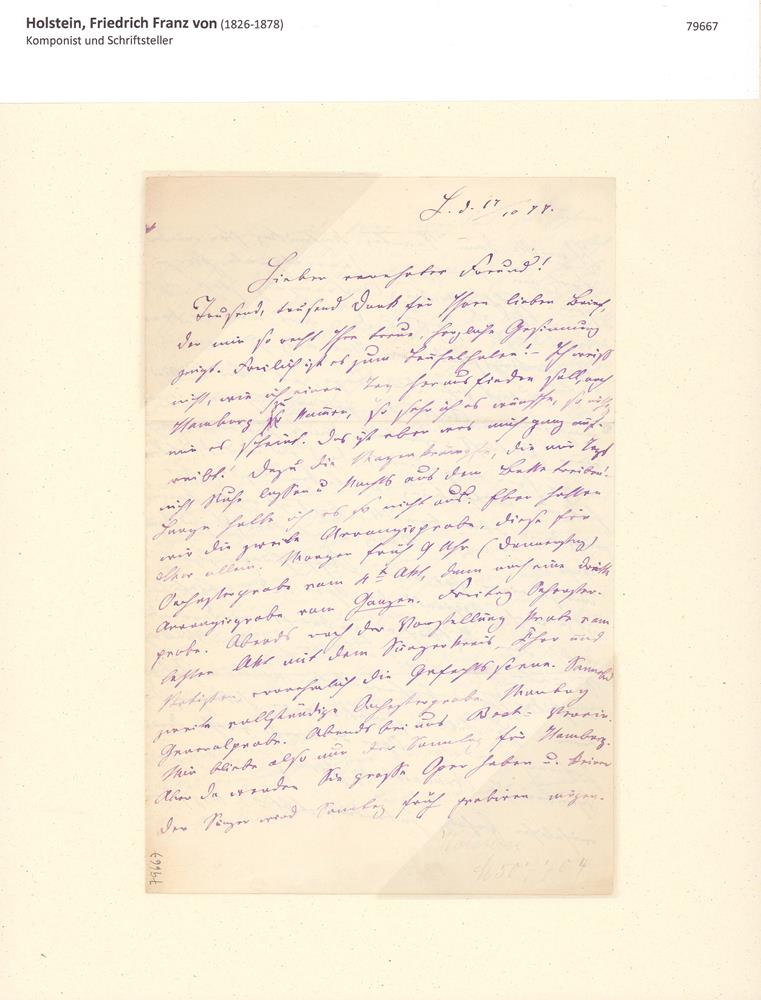 Holstein, Friedrich Franz von (1826-1878)
79667
Komponist und Schriftsteller
L. d. 17/10 77.
Lieber verehrter Freund!
Tausend, tausend Dank für Ihren lieben Brief,
der mir so recht Ihre treue, herzliche Gesinnung
zeigt. Freilich ist es zum Teufelholen! – Ich weiß
nicht, wie ich einen Tag herausfinden soll, nach
Hamburg zu kommen, so sehr ich es wünsche, so nötig
mir es scheint. Das ist eben was mich ganz auf-
reibt! Dazu die Magenkrämpfe, die mir Tags
nicht Ruhe lassen u. Nachts aus dem Bette treiben.
Lange halte ich es so nicht aus. Eben hatten
wir die zweite Arrangirprobe, diese für
Chor allein. Morgen früh 9 Uhr (Donnerstag)
Orchesterprobe vom 4t Akt, dann noch eine dritte
Arrangirprobe vom Ganzen. Freitag Orchester-
probe. Abends nach der Vorstellung Probe vom
letzten Akt mit dem Sängerkreis, Chor und
Statisten, vornehmlich die Gefechtsscene. Sonnabd
zweite vollständige Orchesterprobe Montag
Generalprobe. Abends bei uns Bach-Verein.
Mir bliebe also nur der Sonntag für Hamburg.
Aber da werden Sie große Oper haben u. keiner
der Sänger wird Sonntag früh probiren mögen.
79667